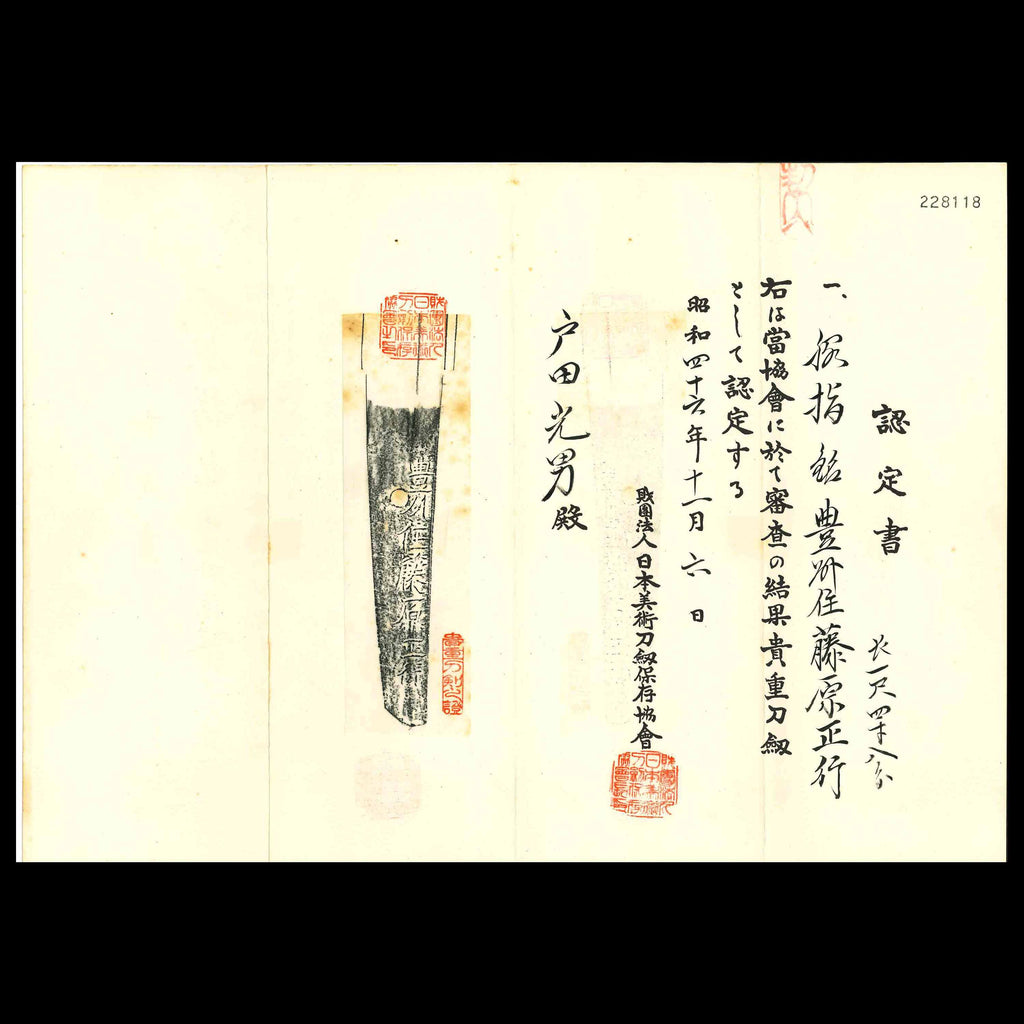 228118
認定書
一、脇指 銘 豊州住藤原正行
長一尺四寸八分
右は當協會に於て審査の結果貴重刀劔
として認定する
昭和四十六年十一月六日
財團法人日本美術刀劔保存協會
戸田光男殿
豊州住藤原正行
貴重刀剣之證